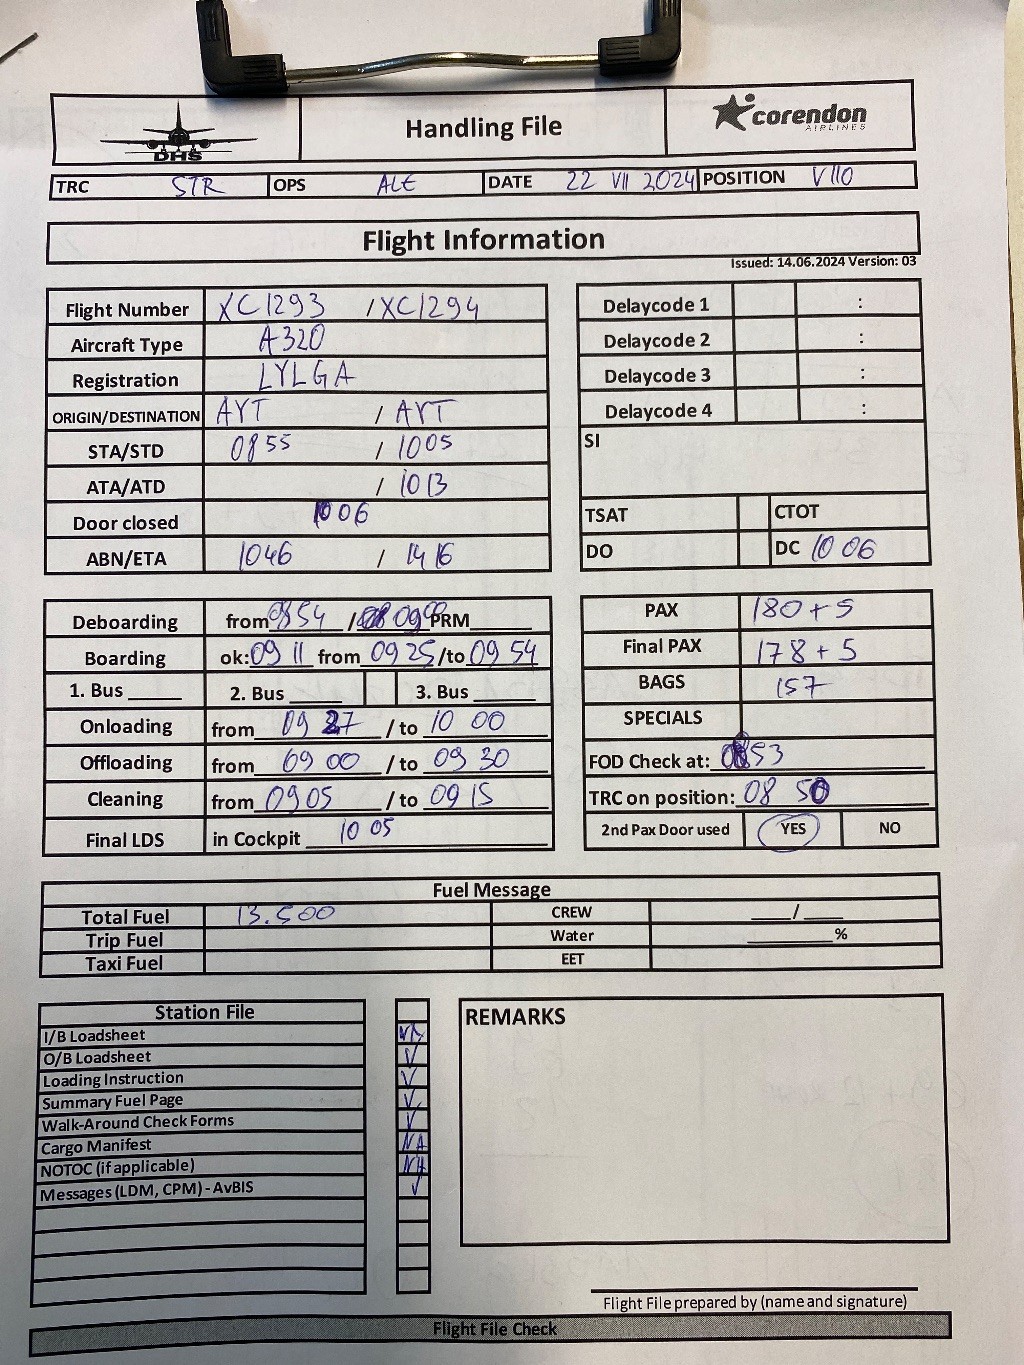 DHS
Handling File
corendon
AIRLINES
TRC STR OPS ALE DATE 22 VII 2024 POSITION V110
Flight Information
Issued: 14.06.2024 Version: 03
Flight Number XC1293 /XC1294
Aircraft Type A320
Registration LYLGA
ORIGIN/DESTINATION AYT / AYT
STA/STD 0855 / 1005
ATA/ATD / 1013
Door closed 1006
ABN/ETA 1046 / 1416
Delaycode 1 :
Delaycode 2 :
Delaycode 3 :
Delaycode 4 :
SI
TSAT CTOT
DO DC 10 06
Deboarding from 0854 / 0900 PRM
Boarding ok: 09 11 from 09 25 /to 09 54
1. Bus 2. Bus 3. Bus
Onloading from 09 27 / to 10 00
Offloading from 09 00 / to 09 30
Cleaning from 0905 / to 09 15
Final LDS in Cockpit 10 05
PAX 180 + 5
Final PAX 178 + 5
BAGS 157
SPECIALS
FOD Check at: 0853
TRC on position: 08 50
2nd Pax Door used YES NO
Fuel Message
Total Fuel 13.500 CREW /
Trip Fuel Water %
Taxi Fuel EET
Station File
I/B Loadsheet NA
O/B Loadsheet
Loading Instruction
Summary Fuel Page
Walk-Around Check Forms
Cargo Manifest NA
NOTOC (if applicable) NA
Messages (LDM, CPM) - AvBIS
REMARKS
Flight File prepared by (name and signature)
Flight File Check